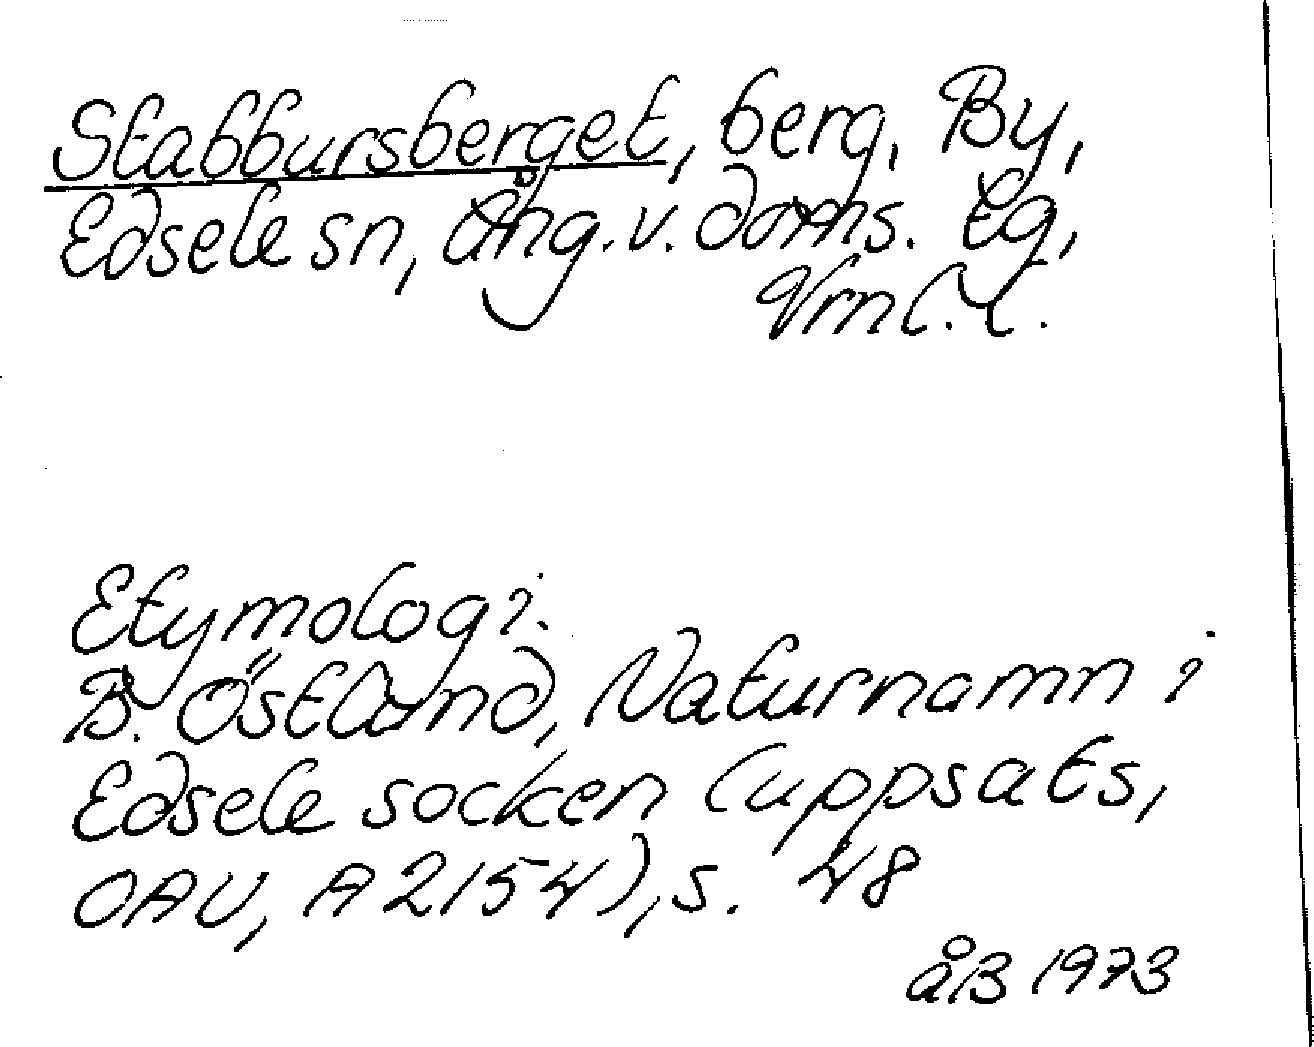 Stabbursberget, berg, By,
Edsele sn, Ång. v. doms. tg,
Vrnl. l.
Etymologi.
B. Östlund, Naturnamn i
Edsele socken (uppsats,
OAU, A 2154), s. 48
åB 1973